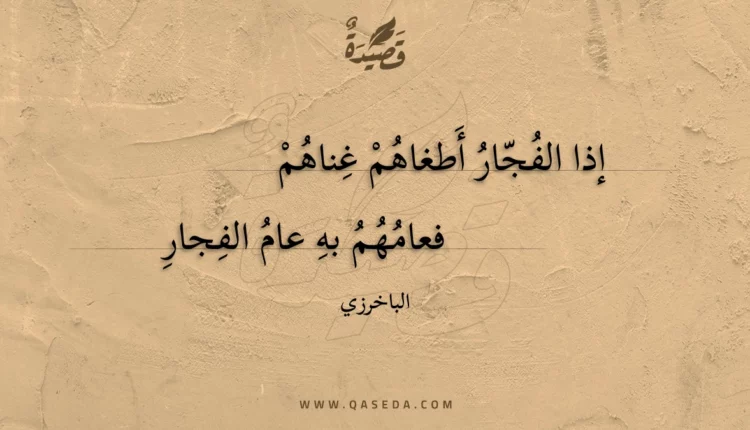 قَصِيدَةٌ
إذا الفُجّارُ أَطغاهُمْ غِناهُمْ
فعامُهُمُ بهِ عامُ الفِجارِ
الباخرزي
WWW.QASEDA.COM